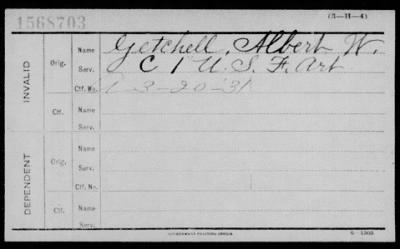 1568703
(3—11—4)
INVALID
Orig.
Name Getchell, Albert W.
Serv. C 1 U. S. F. Art
Ctf. No. 3-20-31
Ctf.
Name
Serv.
DEPENDENT
Orig.
Name
Serv.
Ctf. No.
Ctf.
Name
Serv.
GOVERNMENT PRINTING OFFICE